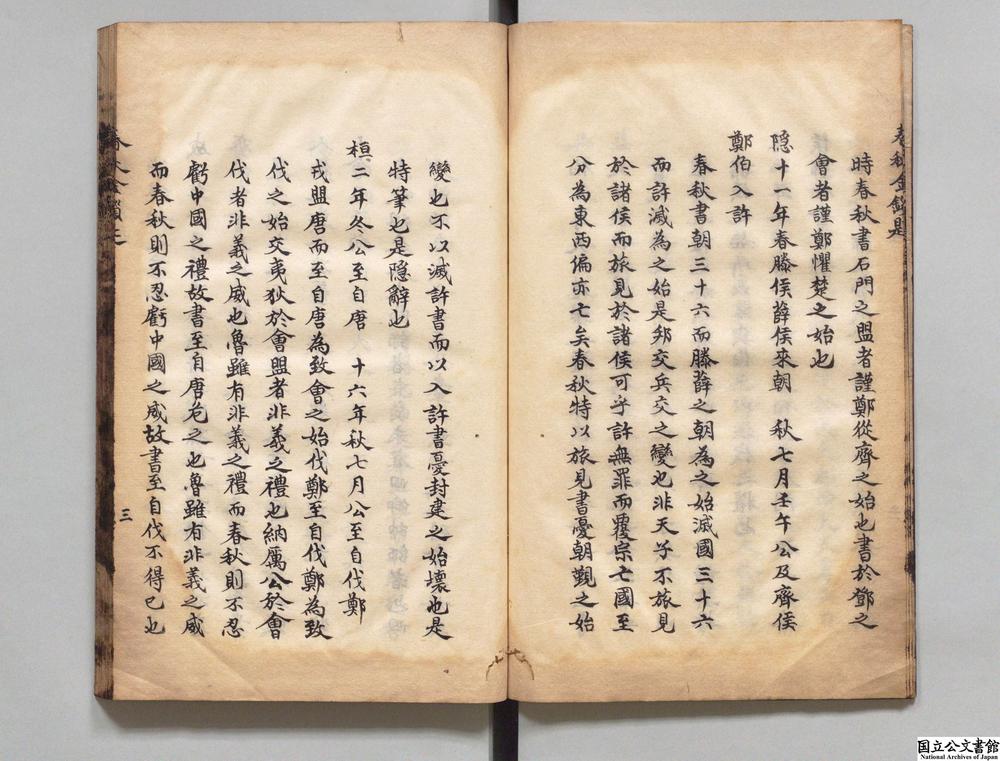 時春秋書石門之盟者謹鄭從齊之始也書於鄧之
會者謹鄭懼楚之始也
隠十一年春滕侯薛侯來朝 秋七月壬午公及齊侯
鄭伯入許
春秋書朝三十六而滕薛之朝為之始滅國三十六
而許滅為之始是邦交兵交之變也非天子不旅見
於諸侯而旅見於諸侯可乎許無罪而覆宗亡國至
分為東西偏亦亡矣春秋特以旅見書憂朝覲之始
變也不以滅許書而以入許書憂封建之始壞也是
特筆也是隠辭也
桓二年冬公至自唐 十六年秋七月公至自伐鄭
戎盟唐而至自唐為致會之始伐鄭至自伐鄭為致
伐之始交夷狄於會盟者非義之禮也納厲公於會
伐者非義之威也魯雖有非義之禮而春秋則不忍
虧中國之禮故書至自唐危之也魯雖有非義之威
而春秋則不忍虧中國之威故書至自伐不得已也
三
国立公文書館
National Archives of Japan